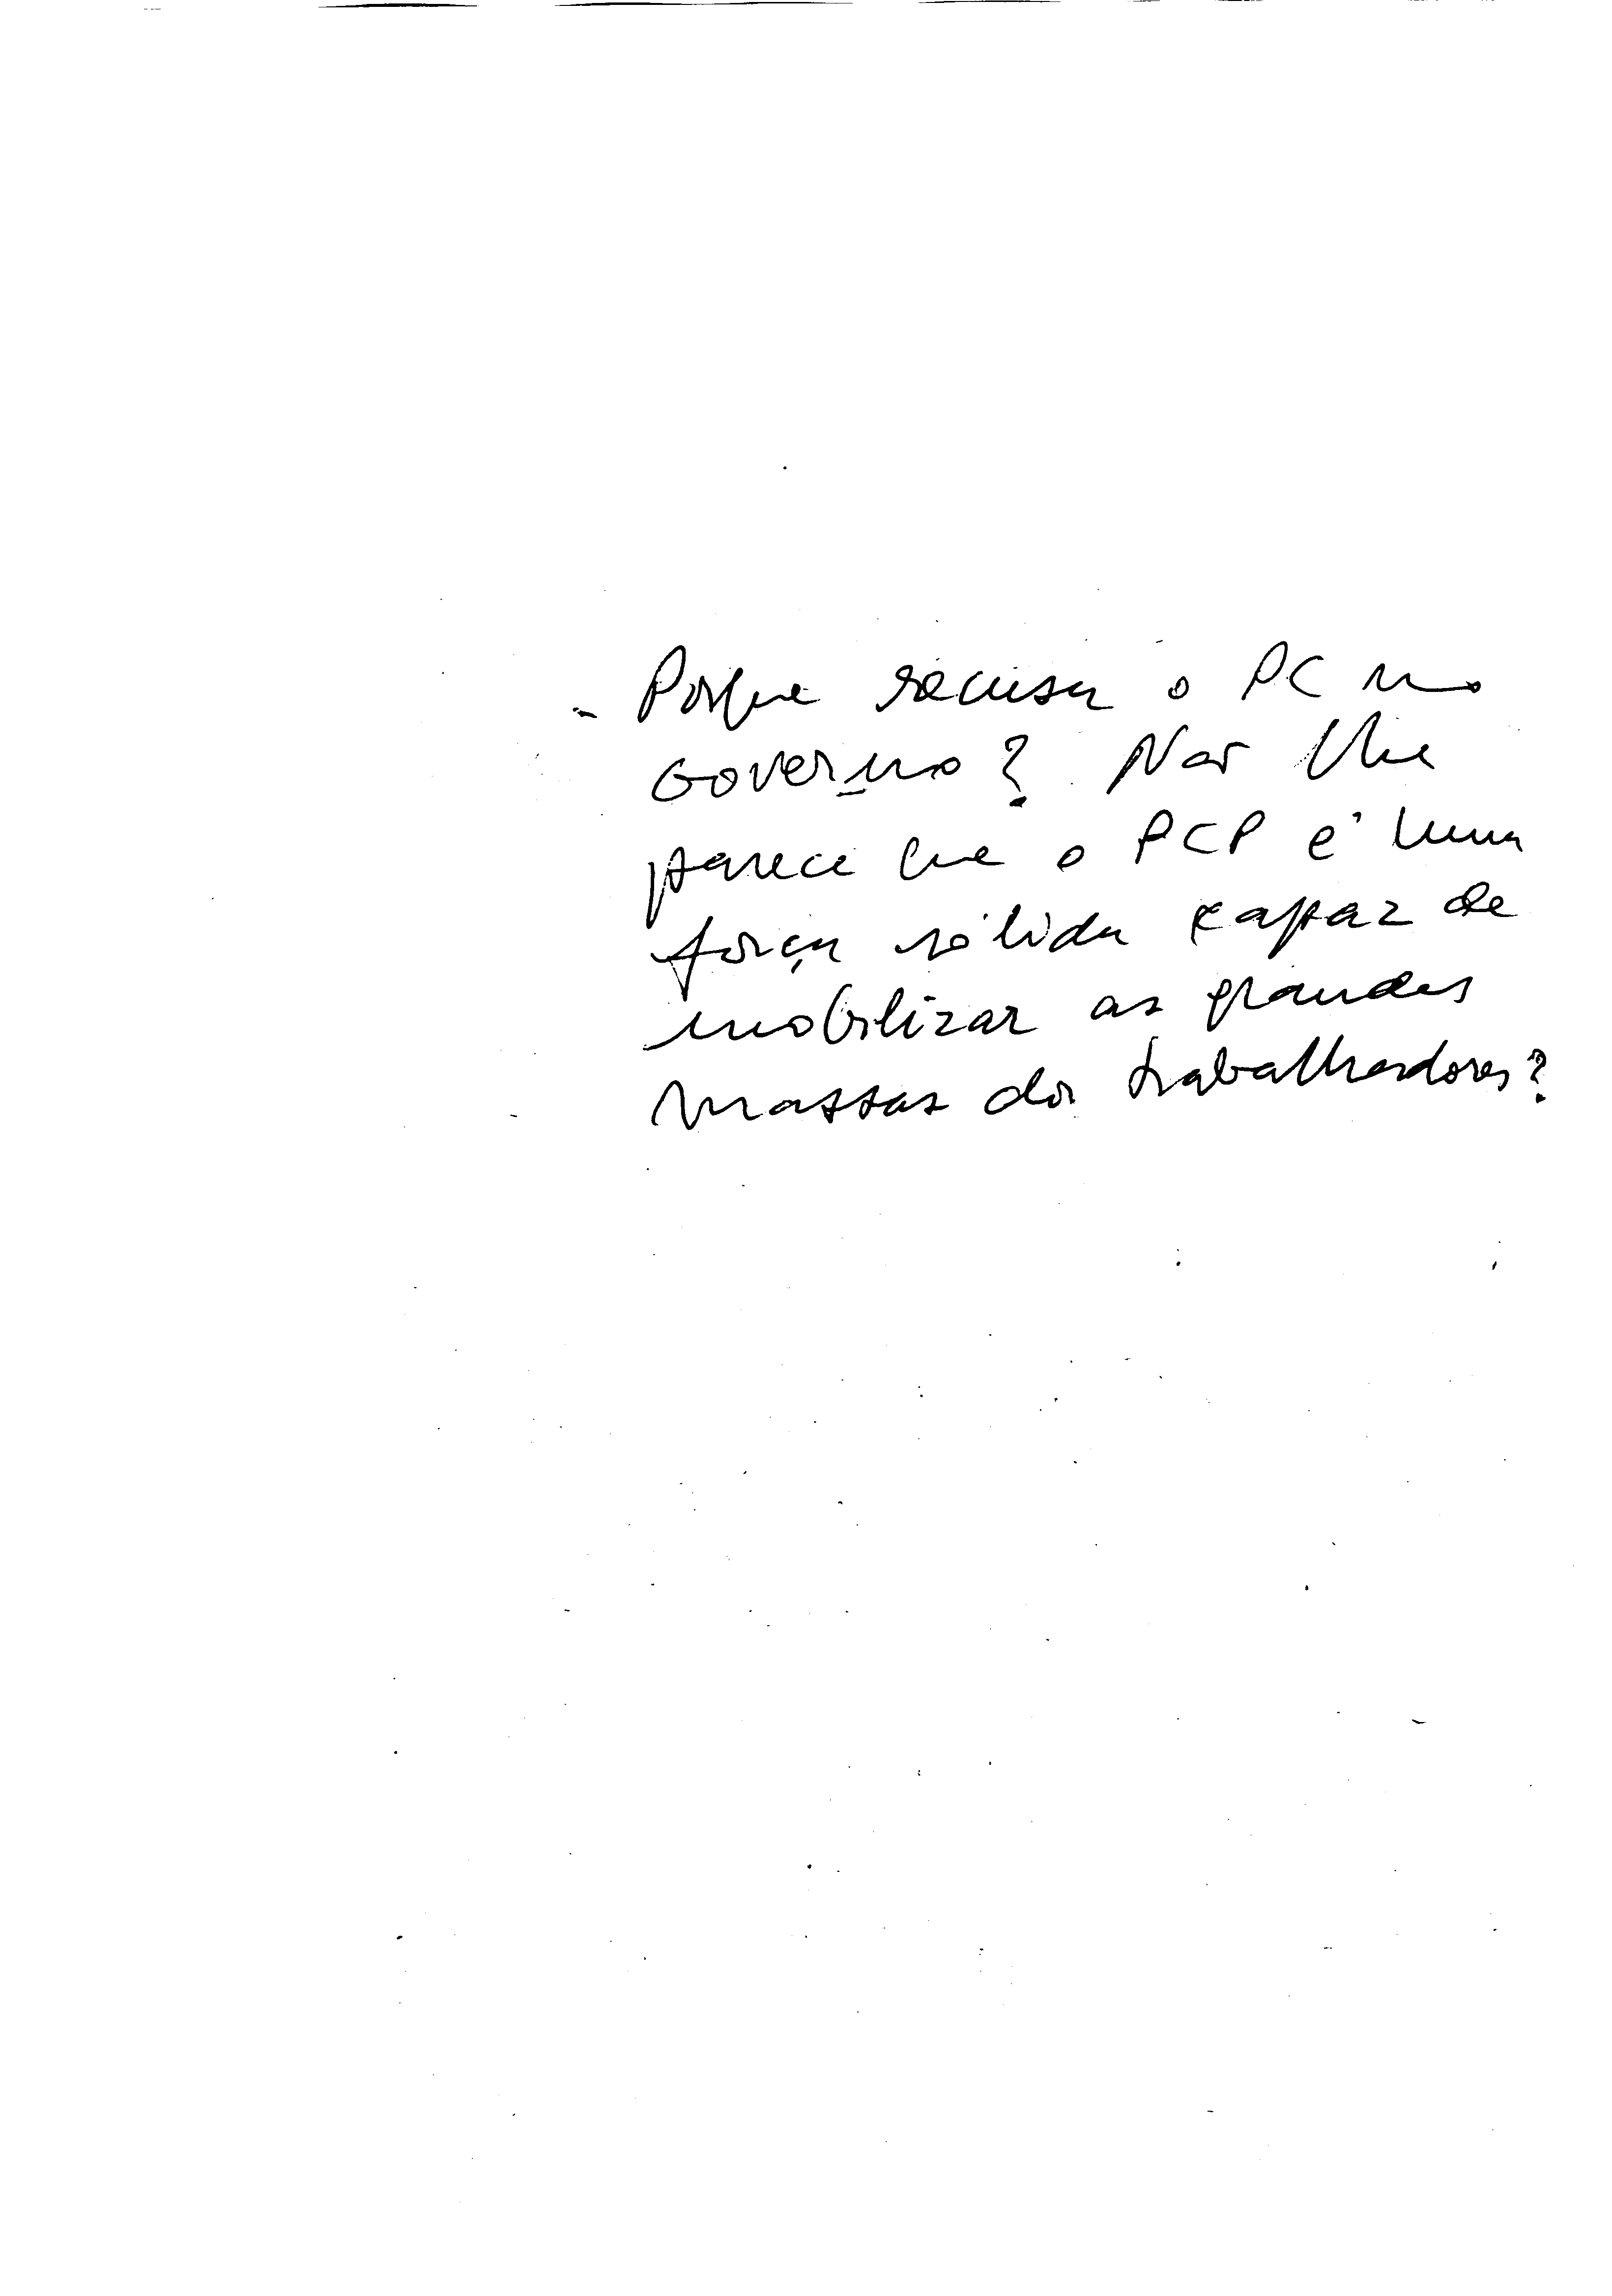 - Porque recusa o PC no
Governo? Não lhe
parece que o PCP é uma
força sólida capaz de
mobilizar as grandes
massas dos trabalhadores?